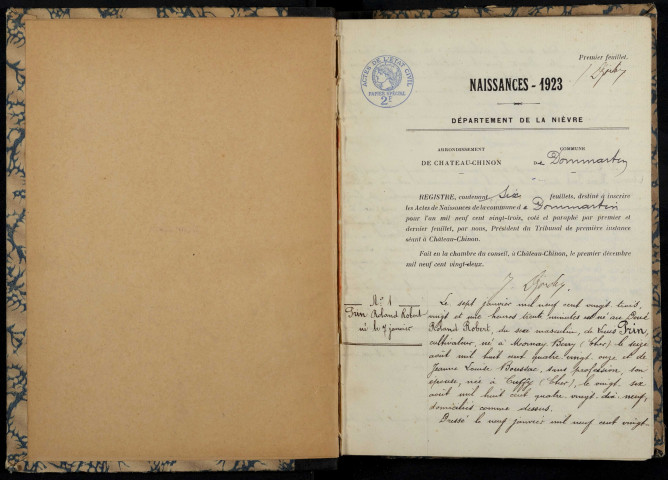 Premier feuillet.
ACTES DE L'ÉTAT CIVIL
PAPIER SPÉCIAL
2F
NAISSANCES - 1923
DÉPARTEMENT DE LA NIÈVRE
ARRONDISSEMENT
DE CHATEAU-CHINON
COMMUNE
de Dommartin
REGISTRE, contenant six feuillets, destiné à inscrire
les Actes de Naissances de la commune d e Dommartin
pour l'an mil neuf cent vingt-trois, coté et paraphé par premier et
dernier feuillet, par nous, Président du Tribunal de première instance
séant à Château-Chinon.
Fait en la chambre du conseil, à Château-Chinon, le premier décembre
mil neuf cent vingt-deux.
N° 1
Prin Roland Robert
né le 7 janvier
Le sept janvier mil neuf cent vingt trois,
vingt et une heures trente minutes est né au
Roland Robert, du sexe masculin, de Louis Prin,
cultivateur, né à Mornay Berry (Cher) le seize
août mil huit cent quatre vingt onze et de
Jeanne Louise Boussac, sans profession, son
épouse, née à Cuffy (Cher), le vingt six
août mil huit cent quatre vingt dix neuf,
domiciliés comme dessus.
Dressé le neuf janvier mil neuf cent vingt-